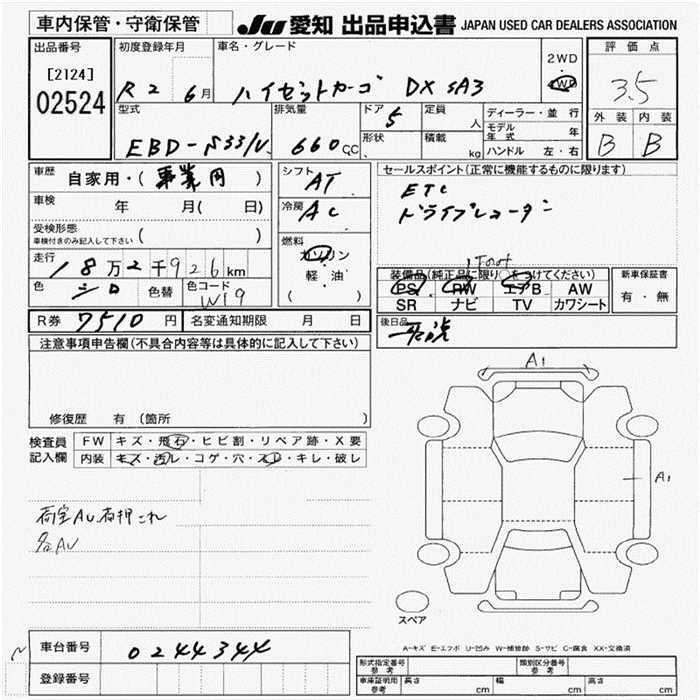 車内保管・守衛保管
JU 愛知 出品申込書 JAPAN USED CAR DEALERS ASSOCIATION
出品番号
[2124]
02524
初度登録年月
R2 6月
車名・グレード
ハイゼットカーゴ DX SA3
2WD
4WD
評価点
3.5
外装 内装
B B
型式
EBD-S331V
排気量
660cc
ドア
5
形状
定員
人
積載
kg
ディーラー・並行
モデル年式 年
ハンドル 左・右
車歴 自家用・(事業用)
車検 年 月( 日)
受検形態
車検付きのみ記入して下さい ( )
走行 18万2千926km
色 シロ 色替 色コード W19
シフト
AT
冷房
AC
燃料
ガソリン
軽・油
( )
セールスポイント(正常に機能するものに限ります)
ETC
ドライブレコーダー
装備品(純正品に限り○をつけてください)
PS PW エアB AW
SR ナビ TV カワシート
新車保証書
有・無
R券 7510円 名変通知期限 月 日
後日品
注意事項申告欄(不具合内容等は具体的に記入して下さい)
修復歴 有 (箇所 )
検査員
記入欄
FW キズ・飛石・ヒビ割・リペア跡・X要
内装 キズ・汚レ・コゲ・穴・スレ・キレ・破レ
荷室AU
各AU
A1
A1
スペア
A-キズ E-エクボ U-凹み W-補修跡 S-サビ C-腐食 XX-交換済
車台番号 0244344
登録番号
形式指定番号
参考
類別区分番号
参考
車庫証明用
参考
長さ cm 幅 cm 高さ cm